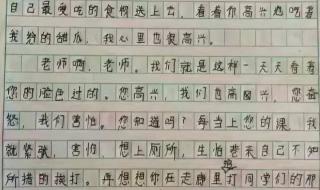 自己最爱吃的食物送上去，看着你高兴地吃着
我给的甜瓜，我心里也很高兴。
老师啊，老师。我们就是这样一天天看着
您的脸色过的。您高兴，我们也高兴，您
怒，我们害怕。您知道吗？每当上您的课，我
就紧张，害怕，想上厕所，生怕带来自己不知
所措的挨打。再想想你在走廊里打同学们的那
班